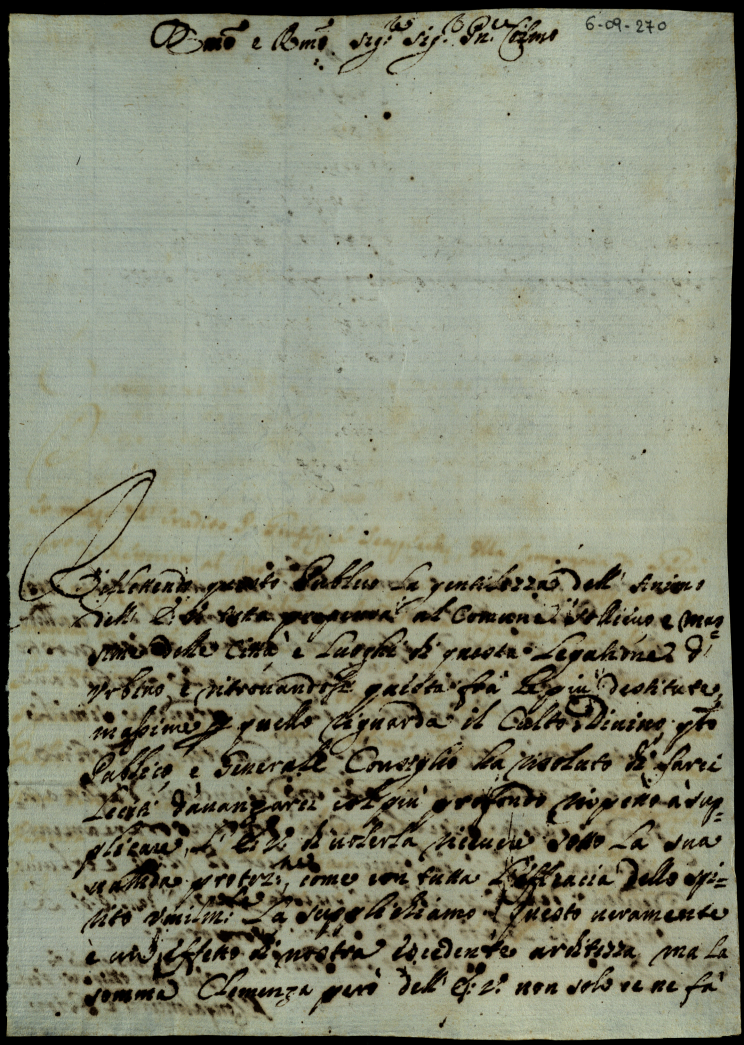 6-09-270
Emo e Rmo Sig.re Sig.r Pn.e Colmo
Riflettendo questo Publico la gentilezza dell' Animo
dell' E. V. tutta al Comune sollievo e mas=
sime delle Città e Luoghi di questa Legatione d'
Urbino, e ritrovandosi questa frà le più destitute,
massime p quello riguarda il Culto Divino, q.to
Publico e Generale Consiglio ha risoluto di farci
lecito d'avanzarci col più profondo rispetto à sup=
plicare l' E. V. di volerla ricevere sotto la sua
valida protez.ne, come con tutta l'efficacia dello spi=
rito umilm.te La supplichiamo. Questo veramente
è un effetto di nostra eccedente arditezza, ma la
somma Clemenza però dell' E. V. non solo ce ne fà